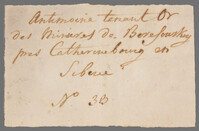 Antimoine tenant Or
des Minieres de Beresowsky
pres Catherinebourg en
Siberie
No 33